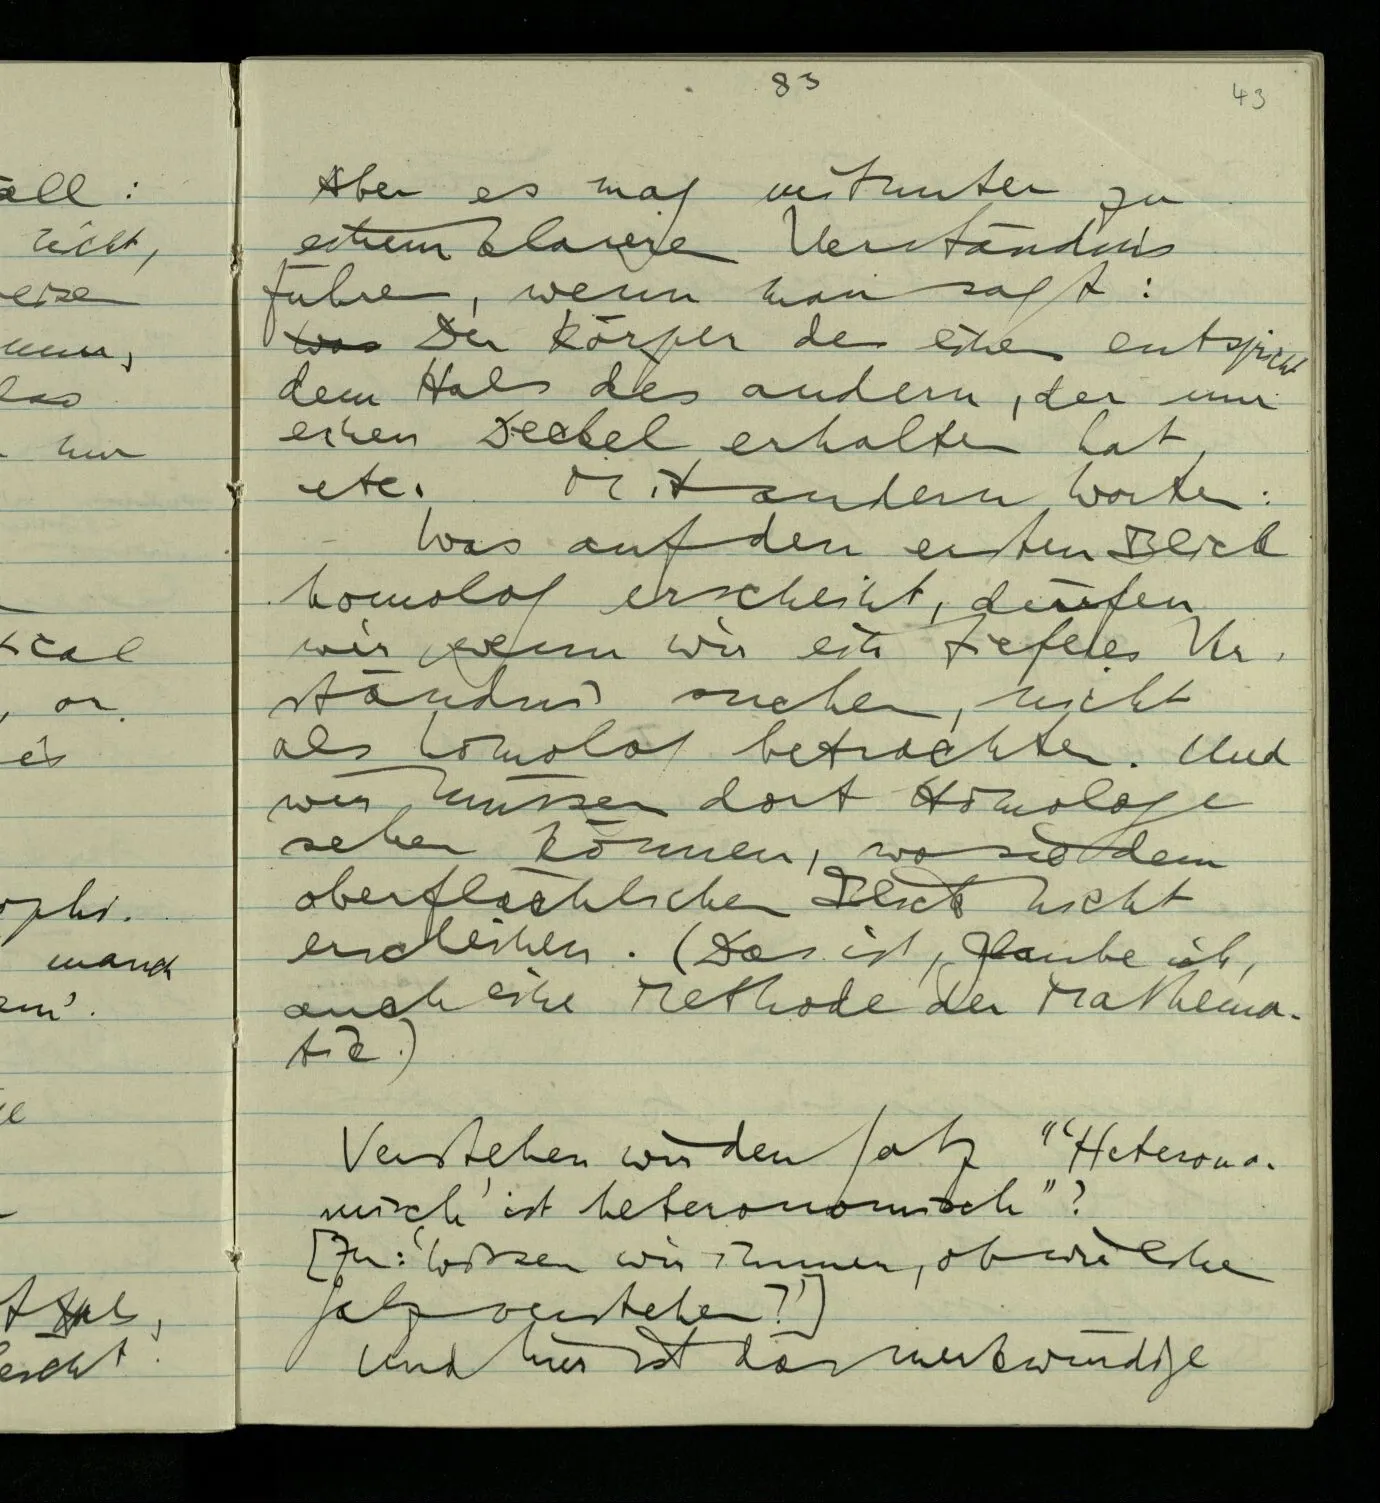 83
43
Aber es mag mitunter zu
einem klareren Verständnis
führen, wenn man sagt:
Was Der Körper des einen entspricht
dem Hals des andern, der nur
einen Deckel erhalten hat,
etc. Mit andern Worten:
Was auf den ersten Blick
homolog erscheint, dürfen
wir wenn wir ein tieferes Ver-
ständnis suchen, nicht
als homolog betrachten. Und
wir müssen dort Homologe
sehen können, wo sie dem
oberflächlichen Blick nicht
erscheinen. (Das ist, glaube ich,
auch eine Methode der Mathema-
tik.)
Verstehen wir den Satz "'Heterono-
misch' ist heteronomisch"?
[Zu: 'Wissen wir immer, ob wir einen
Satz verstehen?']
Und hier ist das merkwürdige
all:
nicht,
eisen
das
nur
ical
, or
ophi-
manch